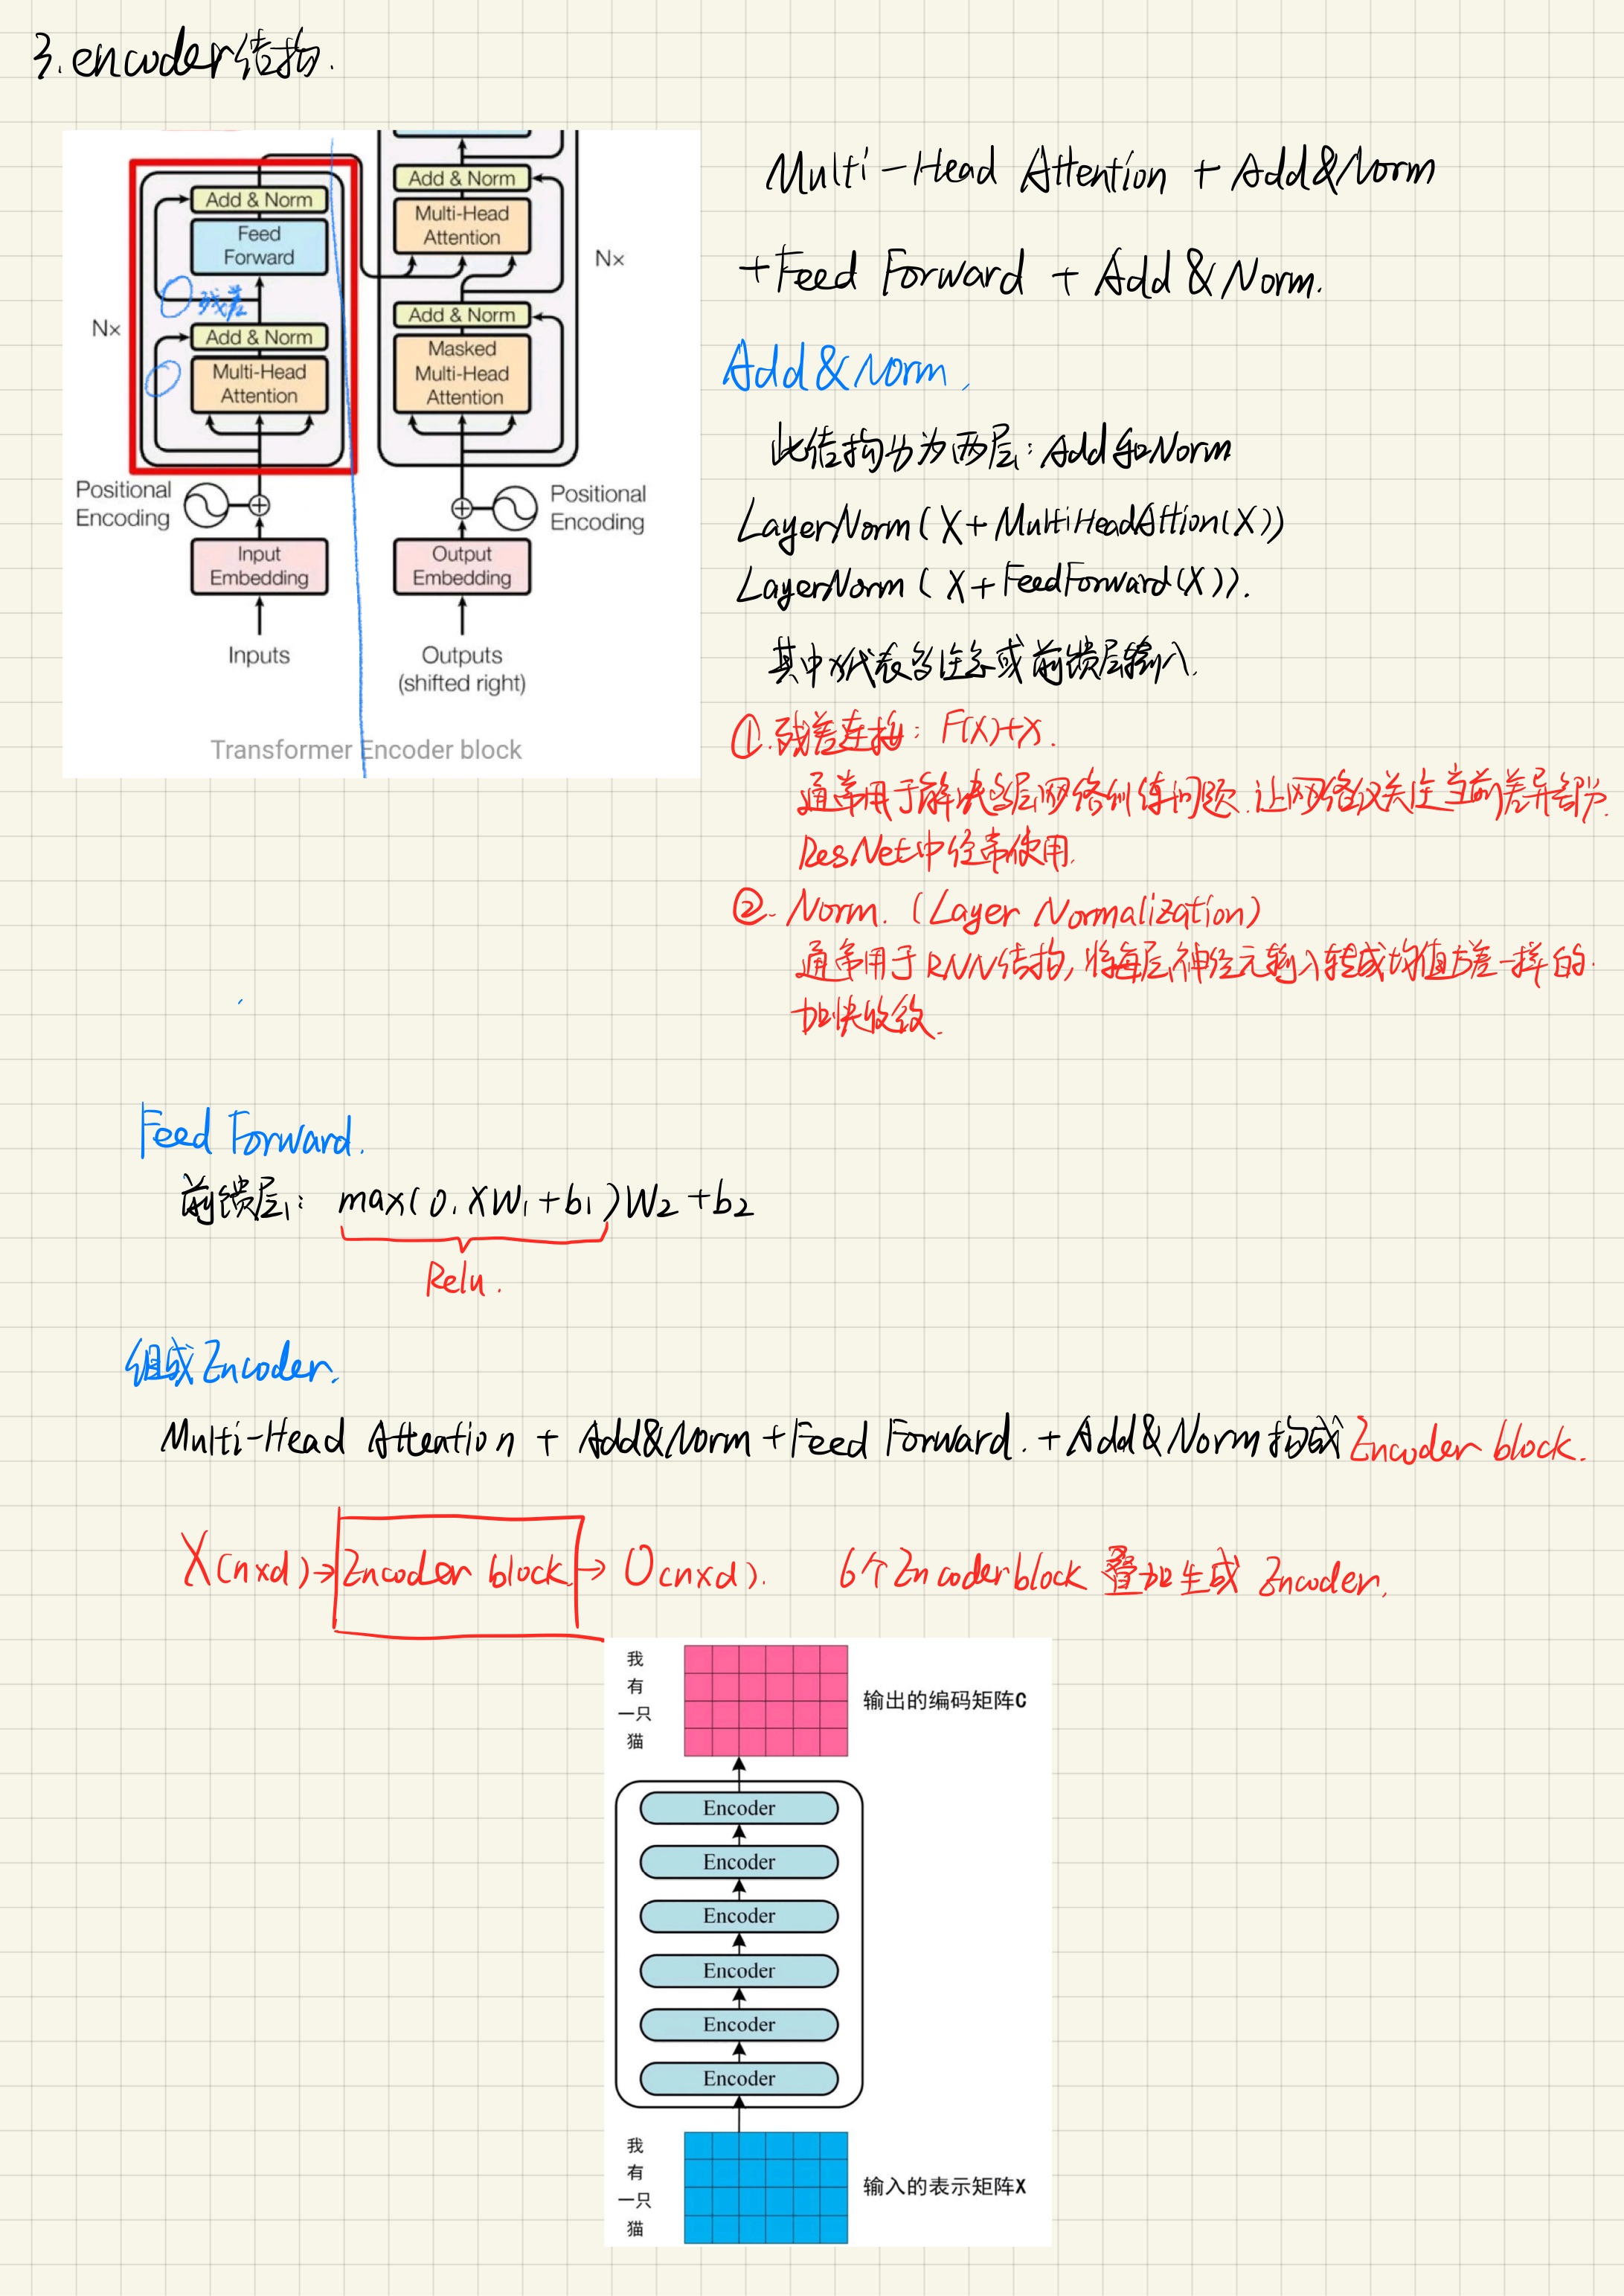 3. encoder结构.
Add & Norm
Feed
Forward
残差
Nx
Add & Norm
Multi-Head
Attention
Positional
Encoding
Input
Embedding
Inputs
Add & Norm
Multi-Head
Attention
Nx
Add & Norm
Masked
Multi-Head
Attention
Positional
Encoding
Output
Embedding
Outputs
(shifted right)
Transformer Encoder block
Multi-Head Attention + Add&Norm
+Feed Forward + Add & Norm.
Add & Norm.
此结构分为两层: Add和Norm
LayerNorm(X+MultiHeadAttion(X))
LayerNorm(X+FeedForward(X)).
其中X代表多注意或前馈层输入.
①.残差连接: F(X)+X.
通常用于解决多层网络训练问题.让网络仅关注当前差异部分.
ResNet中经常使用.
②. Norm. (Layer Normalization)
通常用于RNN结构,将每层神经元输入转成均值方差一样的.
加快收敛.
Feed Forward.
前馈层: max(0, XW1+b1)W2+b2
Relu.
组成Encoder.
Multi-Head Attention + Add&Norm+Feed Forward.+Add&Norm构成Encoder block.
X(nxd)→Encoder block→O(nxd). 6个Encoder block 叠加生成 Encoder.
我
有
一只
猫
输出的编码矩阵C
Encoder
Encoder
Encoder
Encoder
Encoder
Encoder
我
有
一只
猫
输入的表示矩阵X